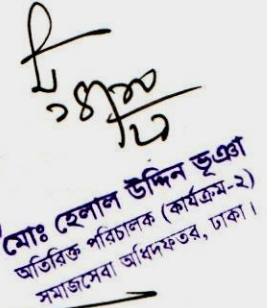 মোঃ হেলাল উদ্দিন ভূঞা
অতিরিক্ত পরিচালক (কার্যক্রম-২)
সমাজসেবা অধিদফতর, ঢাকা।